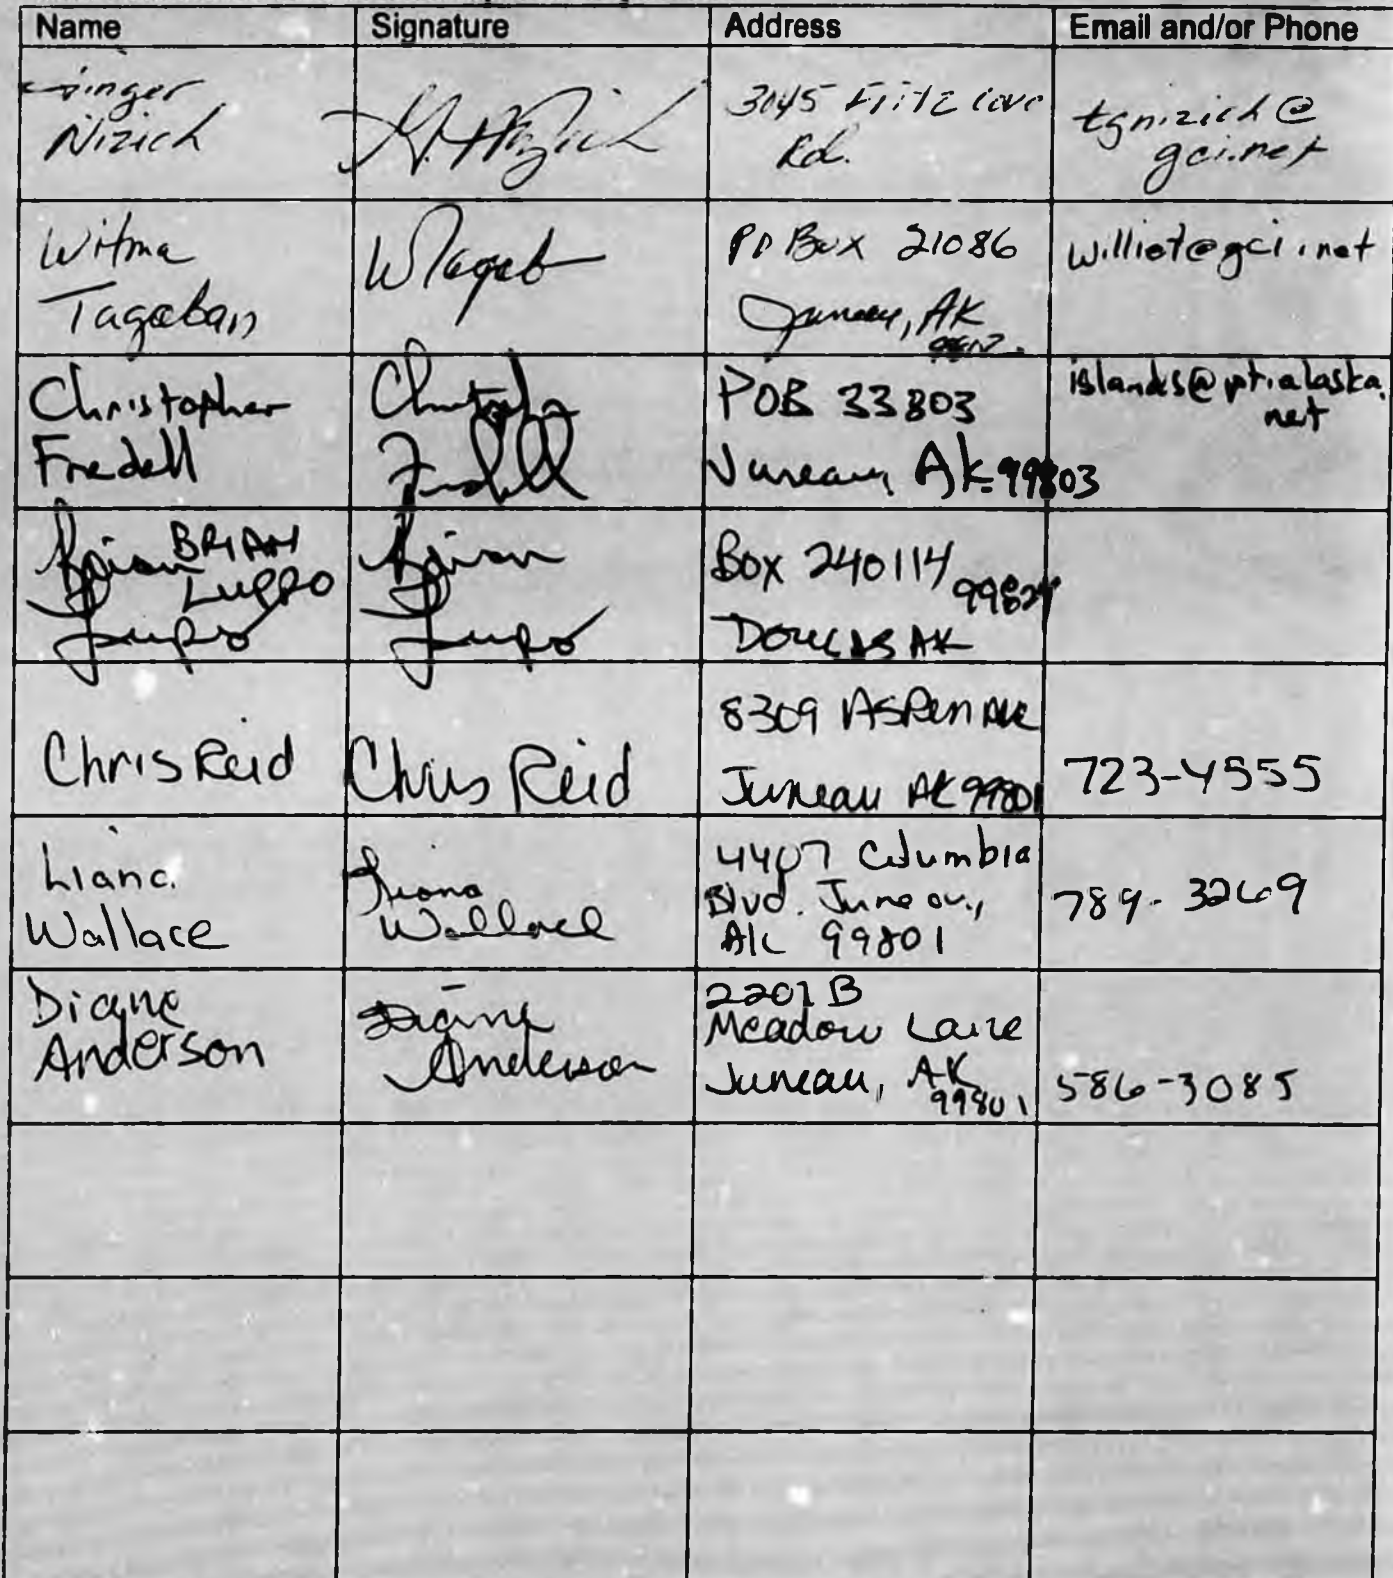 Name Signature Address Email and/or Phone
Ginger
Nizich
G. Nizich
3045 Fritz Cove
Rd.
tgnizich@
gci.net
Wilma
Tagaban
WTagab
PO Box 21086
Juneau, AK
williet@gci.net
Christopher
Fredell
Christopher
Fredell
POB 33803
Juneau, Ak 99803
islands@ptialaska.
net
Brian BRIAN
LUPRO
Lupro
Brian
Lupro
Box 240114
99824
Douglas AK
Chris Reid
Chris Reid
8309 Aspen Ave
Juneau AK 99801
723-4555
Liana
Wallace
Liana
Wallace
4407 Columbia
Blvd. Juneau,
AK 99801
789-3269
Diane
Anderson
Diane
Anderson
2201 B
Meadow Lane
Juneau, AK
99801
586-3085